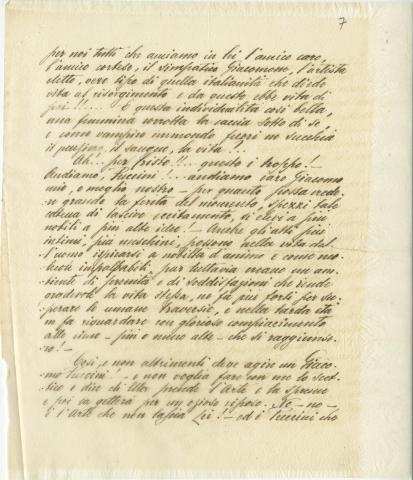 7
per noi tutti che amiamo in lei l'amico caro,
l'amico cortese, il simpatico Giacomone, l'artista
eletto, vero tipo di quella italianità che diede
vita al risorgimento e da questo ebbe vita di
più!.... E questa individualità così bella,
una femmina corrotta la caccia sotto di sé,
e come vampiro immondo le ne succhia
il pensiero, il sangue, la vita!..
Ah... per Cristo!!.. questo è troppo!—
Andiamo, Puccini!... andiamo caro Giacomo
mio, e meglio nostro — per quanto possa
grande la ferita del momento, spezzi tale
catena di lascivo eccitamento, si elevi a più
nobili e più alte idee! — Anche gli atti più
intimi, più meschini, possono nella vita del-
l'uomo ispirarsi a nobiltà d'animo e come
impalpabili, pur tuttavia creano un am-
biente di serenità e di soddisfazioni che rende
la vita stessa, ne fa più forti per su-
perare le umane traversie, e nella tarda età
ne fa riguardare con glorioso compiacimento
alle cime — più e meno alte — che si raggiunse-
ro!—
Così, e non altrimenti deve agire un Giaco-
mo Puccini! — e non voglia fare con me lo scet-
tico e dire che Ella prende l'Arte e la spreme
e poi la getterà per un ozioso riposo. No — no —
È l'Arte che non lascia Lei! — ed i Puccini che